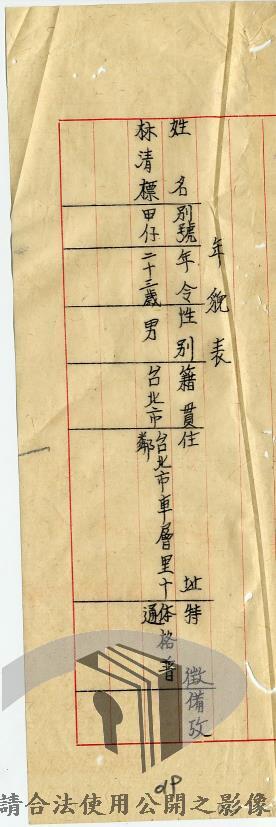 年貌表
姓名 別號 年令 性別 籍貫 住址 特徵 備攷
林清標 甲仔 二十三歲 男 台北市 台北市車層里十鄰 体格普通
請合法使用公開之影像